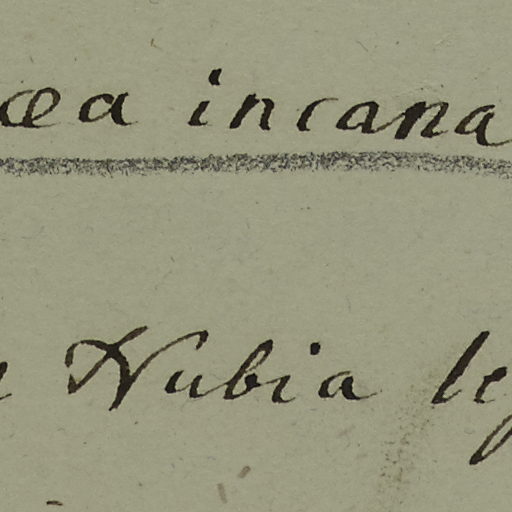 æa incana
Nubia le